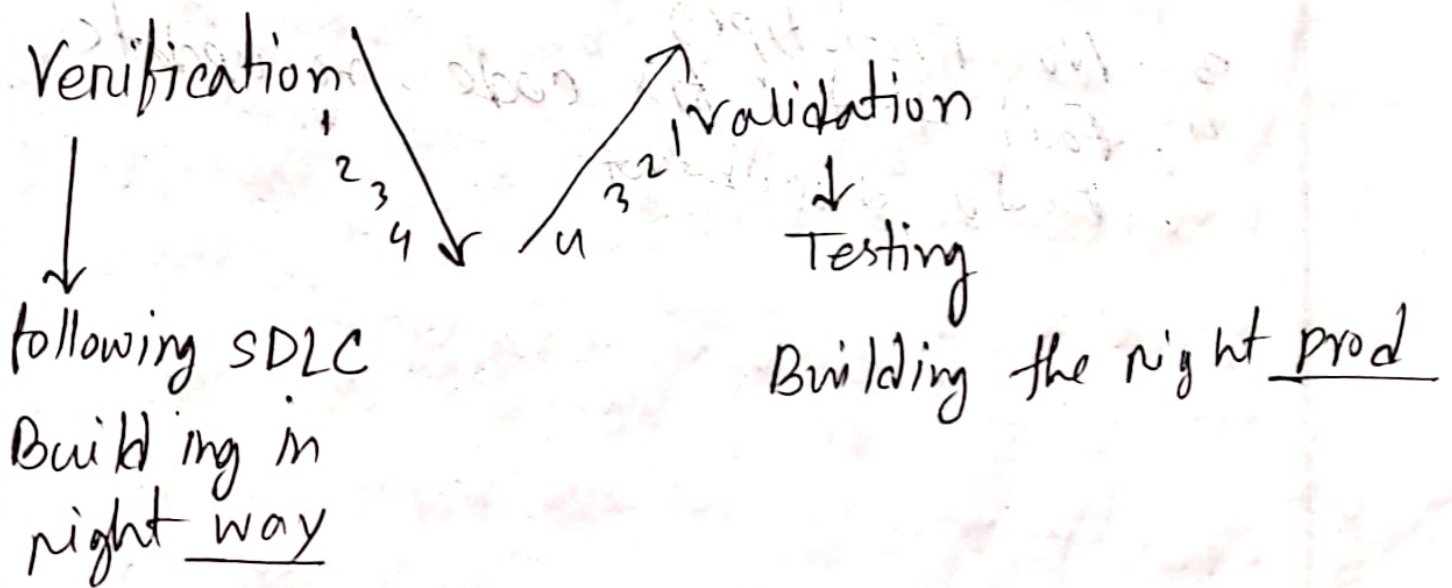 Verification
validation
1
2
3
4
4
3
2
1
Testing
following SDLC
Building in
right way
Building the right prod